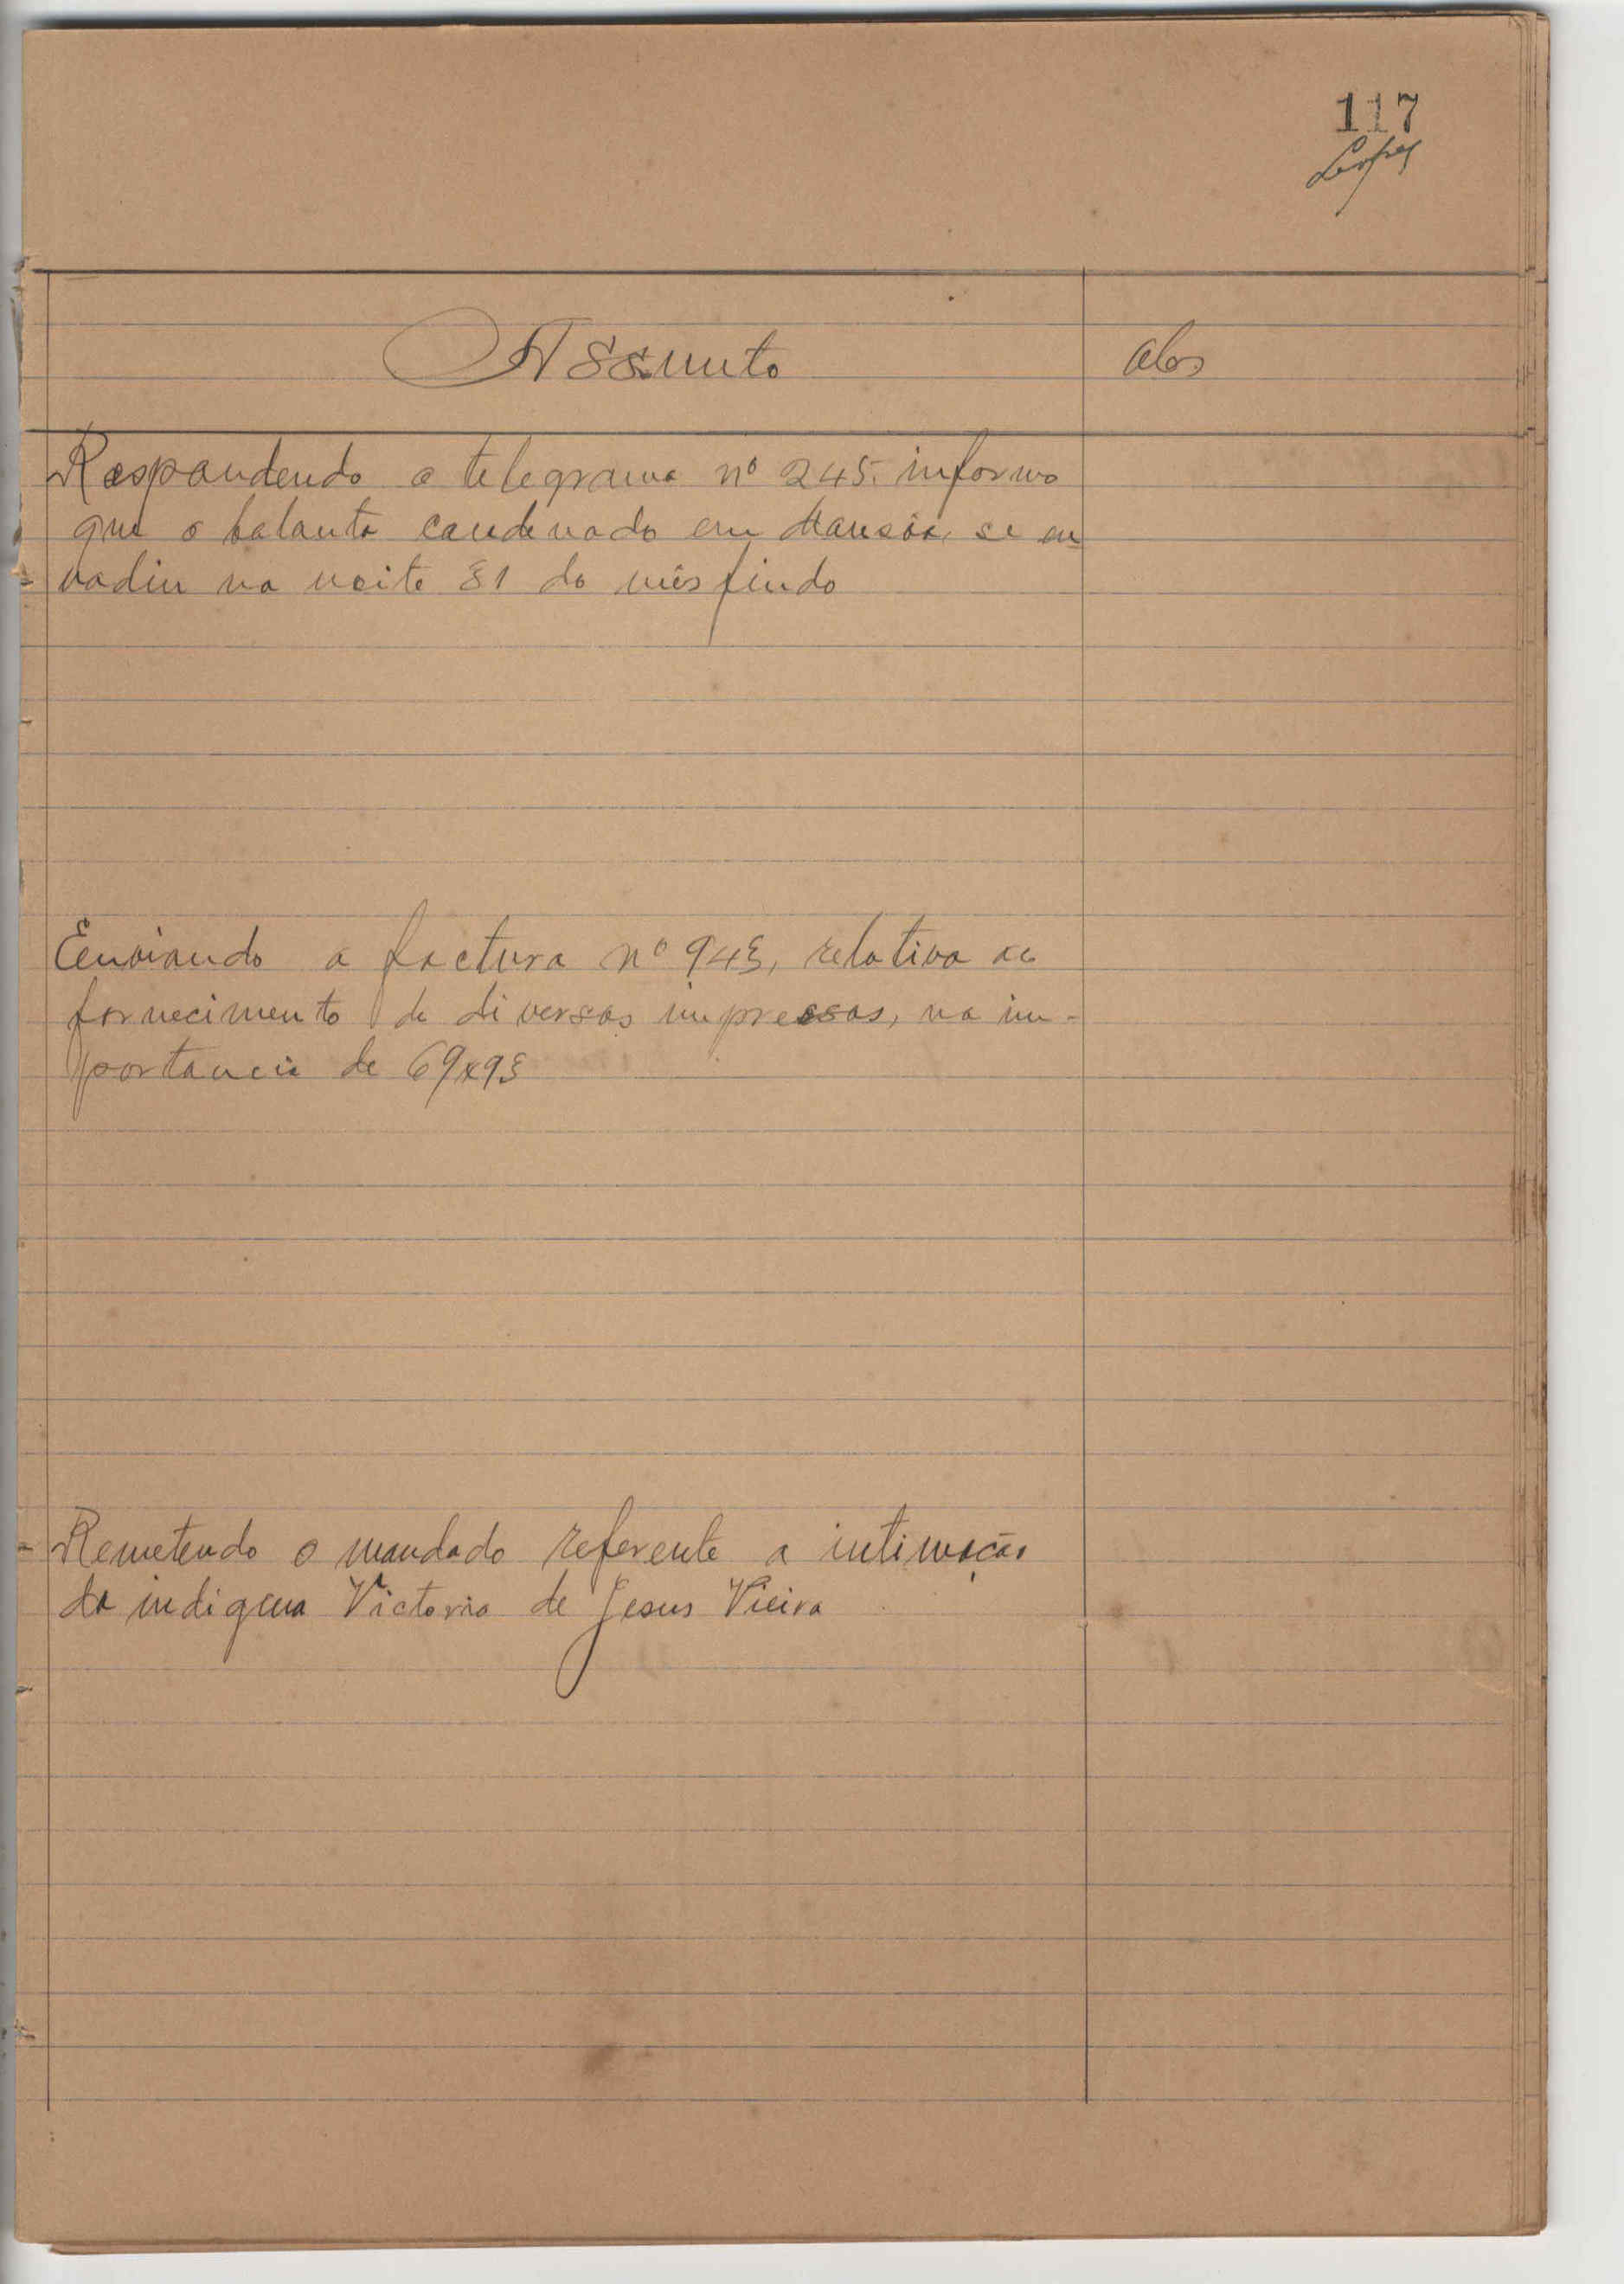 117
Lopes
Assunto
Obs
Respondendo o telegrama nº 245. informo
que o balanta condenado em Mansôa, se en
vadiu na noite 31 do mês findo
Enviando a factura nº 943, relativa ao
fornecimento de diversos impressos, na im-
portancia de 69x93
Remetendo o mandado referente a intimação
da indigena Victoria de Jesus Vieira